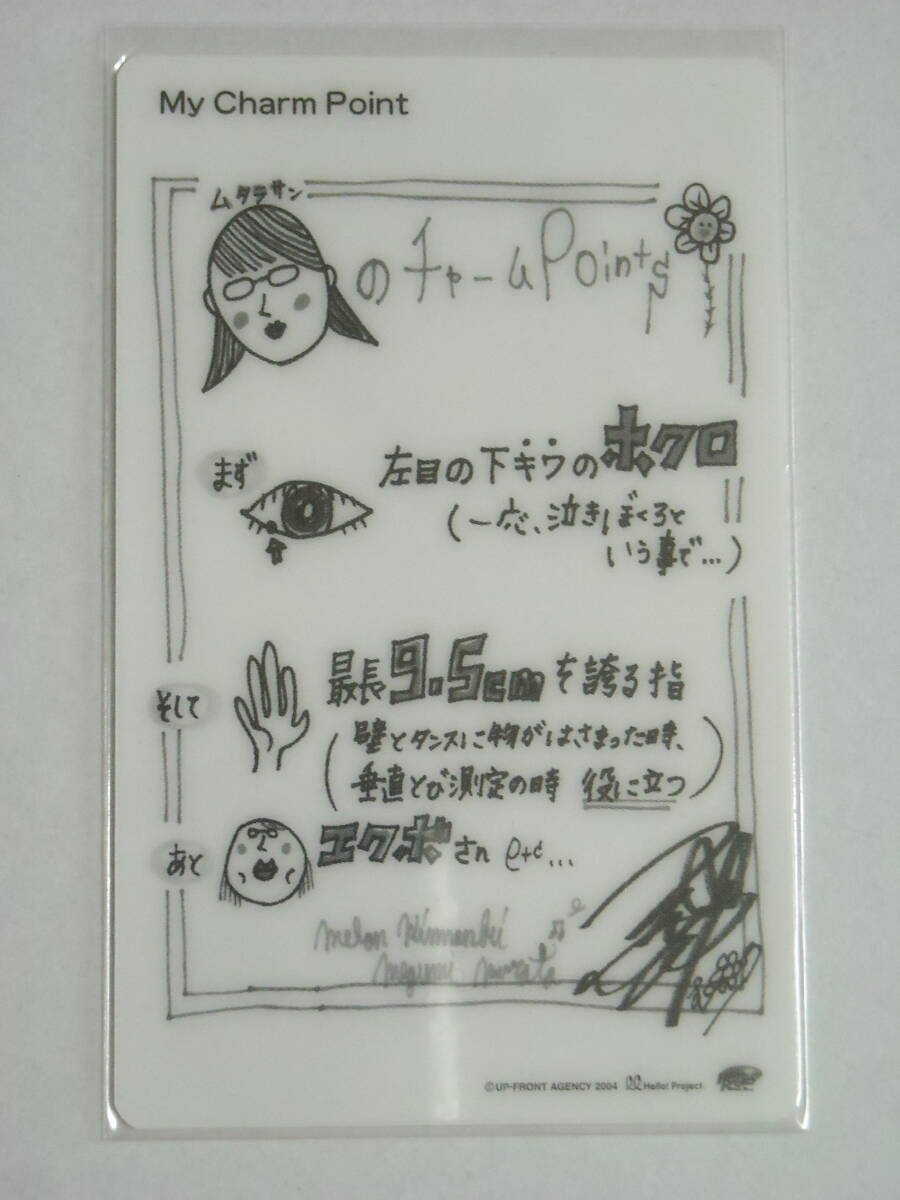 My Charm Point
ムタラサン
のチャームPoints
まず
左目の下キワのホクロ
(一応、泣きぼくろと
いう事で…)
そして
最長9.5cmを誇る指
(壁とタンスに物がはさまった時、
垂直とび測定の時 役に立つ)
あと
エクボさん etc...
melon kinnenbi
megumi murata
©UP-FRONT AGENCY 2004 Hello! Project